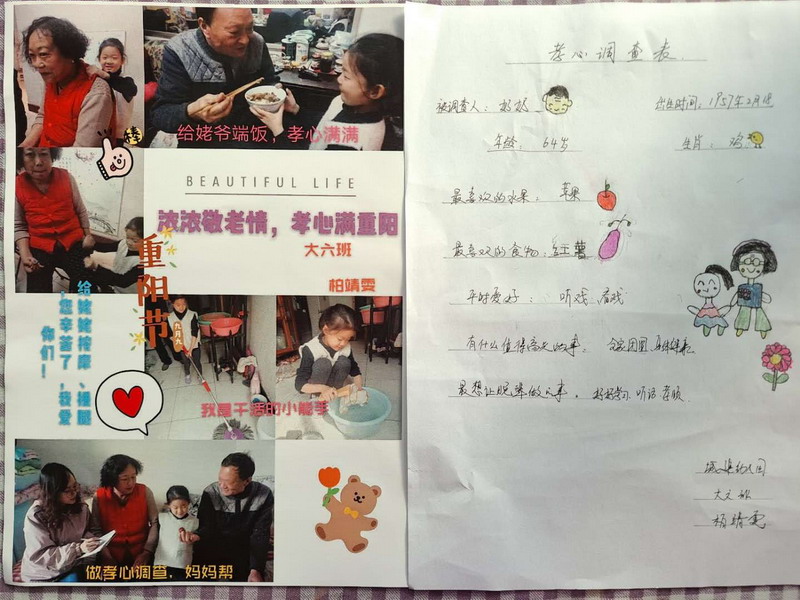 给姥爷端饭，孝心满满
BEAUTIFUL LIFE
浓浓敬老情，孝心满重阳
大六班
柏靖雯
重阳节
九月九
给姥姥按摩、捶腿
，您辛苦了，我爱
你们！
我是干活的小能手
做孝心调查，妈妈帮
孝心调查表
被调查人：姥姥
出生时间：1957年2月
年龄：64岁
生肖：鸡
最喜欢的水果：苹果
最喜欢的食物：红薯
平时爱好：听戏 看戏
有什么值得高兴的事：全家团圆 身体健康
最想让晚辈做的事：好好学习 听话 孝顺
大六班
柏靖雯